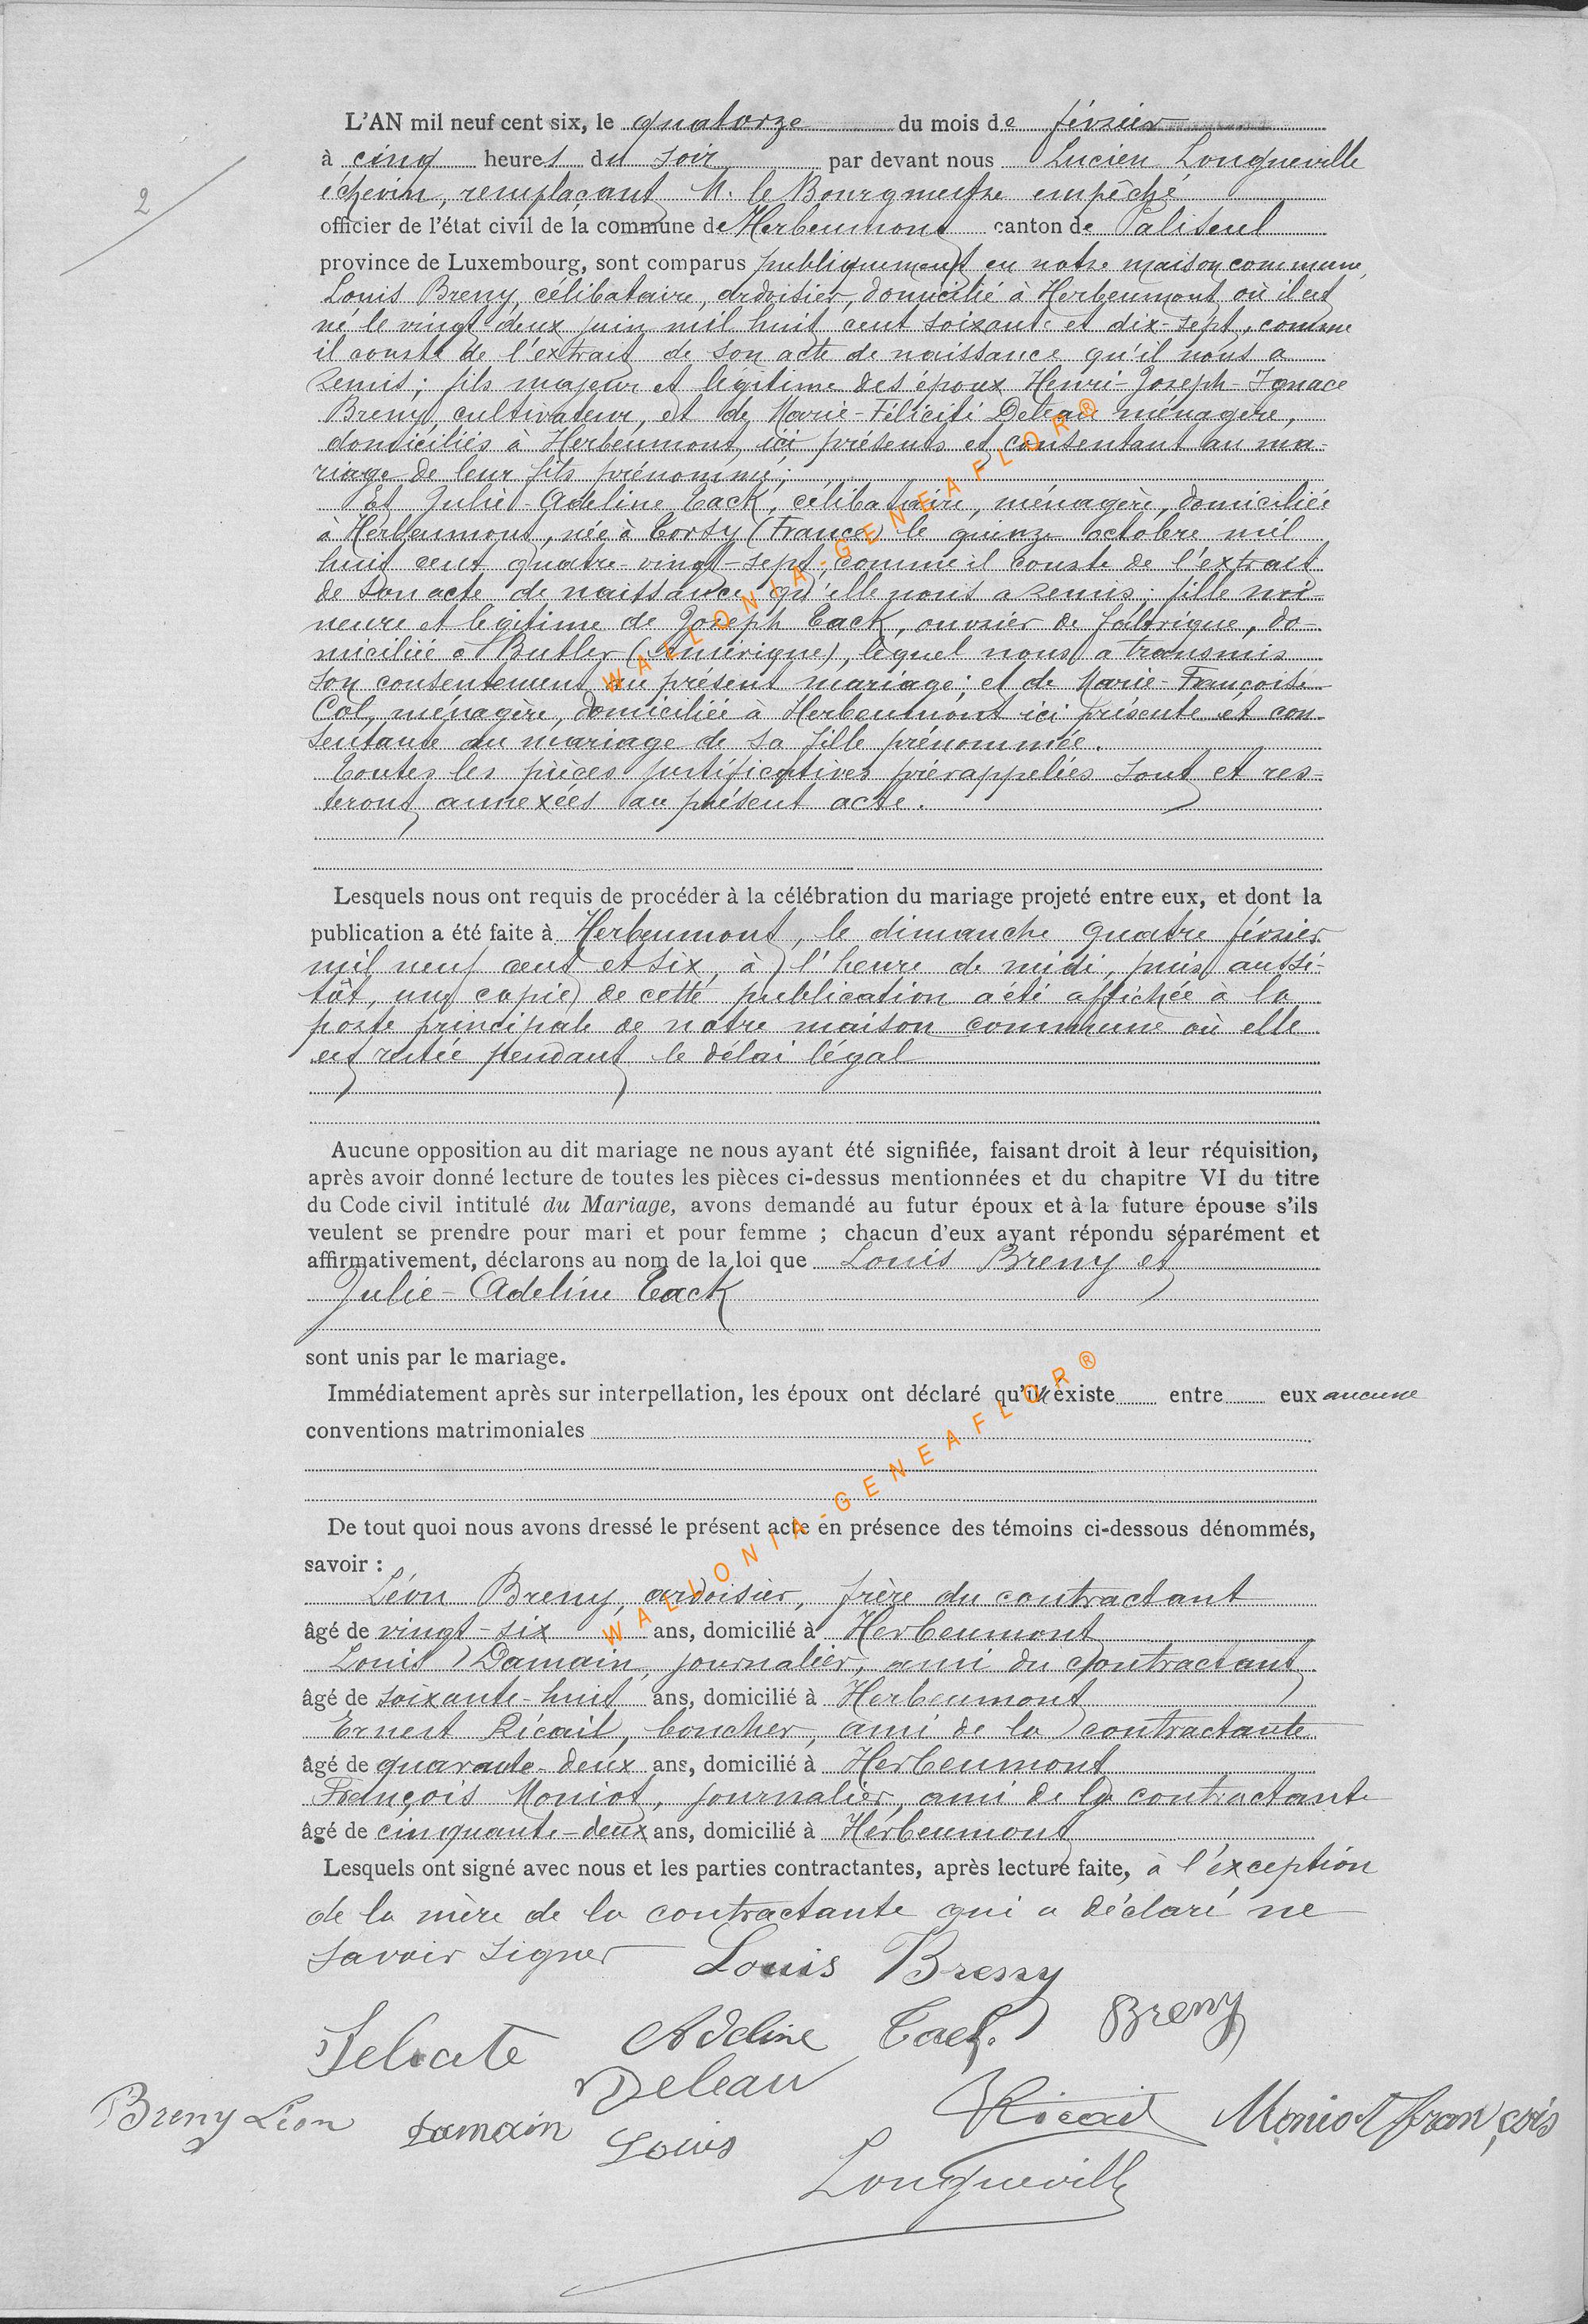 2
L'AN mil neuf cent six, le quatorze du mois de février
à cinq heures du soir par devant nous Lucien Longueville
échevin, remplaçant M. le Bourgmestre empêché
officier de l'état civil de la commune de Herbeumont canton de Paliseul
province de Luxembourg, sont comparus publiquement en notre maison commune,
Louis Breny, célibataire, ardoisier, domicilié à Herbeumont où il est
né le vingt-deux juin mil huit cent soixante et dix-sept, comme
il conste de l'extrait de son acte de naissance qu'il nous a
remis; fils majeur et légitime des époux Henri-Joseph-Ignace
Breny, cultivateur, et de Marie-Félicité Deleau ménagère,
domiciliés à Herbeumont, ici présents et consentant au ma-
riage de leur fils prénommé;
Et Julie-Adeline Tack, célibataire, ménagère, domiciliée
à Herbeumont, née à Torsy (France) le quinze octobre mil
huit cent quatre-vingt-sept, comme il conste de l'extrait
de son acte de naissance qu'elle nous a remis; fille mi-
neure et légitime de Joseph Tack, ouvrier de fabrique, do-
micilié à Butler (Amérique), lequel nous a transmis
son consentement au présent mariage; et de Marie-Françoise
Col, ménagère, domiciliée à Herbeumont ici présente et con-
sentante au mariage de sa fille prénommée.
Toutes les pièces justificatives prérappelées sont et res-
teront annexées au présent acte.
Lesquels nous ont requis de procéder à la célébration du mariage projeté entre eux, et dont la
publication a été faite à Herbeumont, le dimanche quatre février
mil neuf cent et six, à l'heure de midi, puis aussi-
tôt, une copie de cette publication a été affichée à la
porte principale de notre maison commune où elle
est restée pendant le délai légal
Aucune opposition au dit mariage ne nous ayant été signifiée, faisant droit à leur réquisition,
après avoir donné lecture de toutes les pièces ci-dessus mentionnées et du chapitre VI du titre
du Code civil intitulé du Mariage, avons demandé au futur époux et à la future épouse s'ils
veulent se prendre pour mari et pour femme ; chacun d'eux ayant répondu séparément et
affirmativement, déclarons au nom de la loi que Louis Breny et
Julie-Adeline Tack
sont unis par le mariage.
Immédiatement après sur interpellation, les époux ont déclaré qu'il existe entre eux aucune
conventions matrimoniales
De tout quoi nous avons dressé le présent acte en présence des témoins ci-dessous dénommés,
savoir :
Léon Breny, ardoisier, frère du contractant
âgé de vingt-six ans, domicilié à Herbeumont
Louis Damain, journalier, ami du contractant
âgé de soixante-huit ans, domicilié à Herbeumont
Ernest Ricail, boucher, ami de la contractante
âgé de quarante-deux ans, domicilié à Herbeumont
François Moniot, journalier, ami de la contractante
âgé de cinquante-deux ans, domicilié à Herbeumont
Lesquels ont signé avec nous et les parties contractantes, après lecture faite, à l'exception
de la mère de la contractante qui a déclaré ne
savoir signer Louis Breny
Felicite Adeline Tack. Breny
Deleau
Breny Léon Damain Louis Ricail Moniot françois
Longueville
WALLONIA-GENEAFLOR®
WALLONIA-GENEAFLOR®